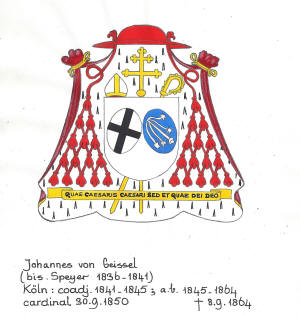 QUAE CAESARIS CAESARI SED ET QUAE DEI DEO
Johannes von Geissel
(bis. Speyer 1836-1841)
Köln: coadj. 1841-1845; a.b. 1845-1864
cardinal 30.9.1850 † 8.9.1864